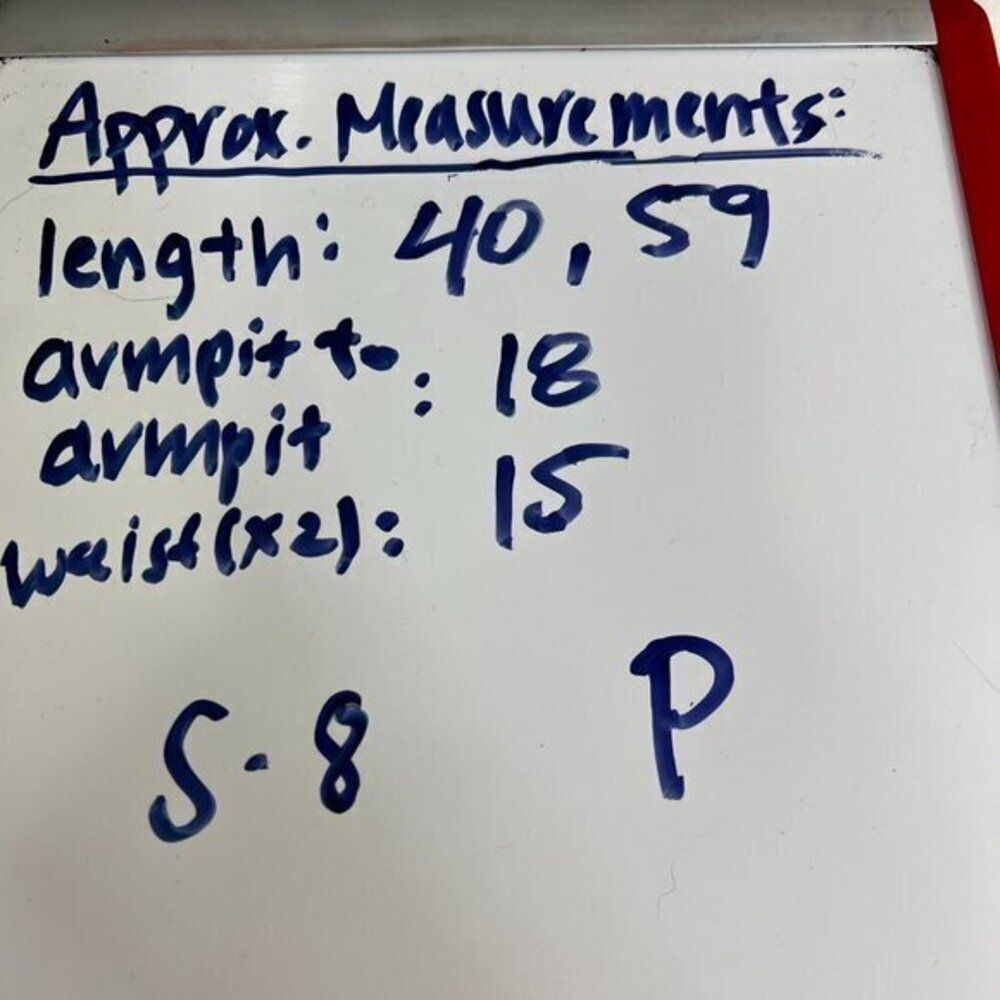 Approx. Measurements:
length: 40, 59
armpit to
armpit : 18
waist(x2): 15
S-8 P